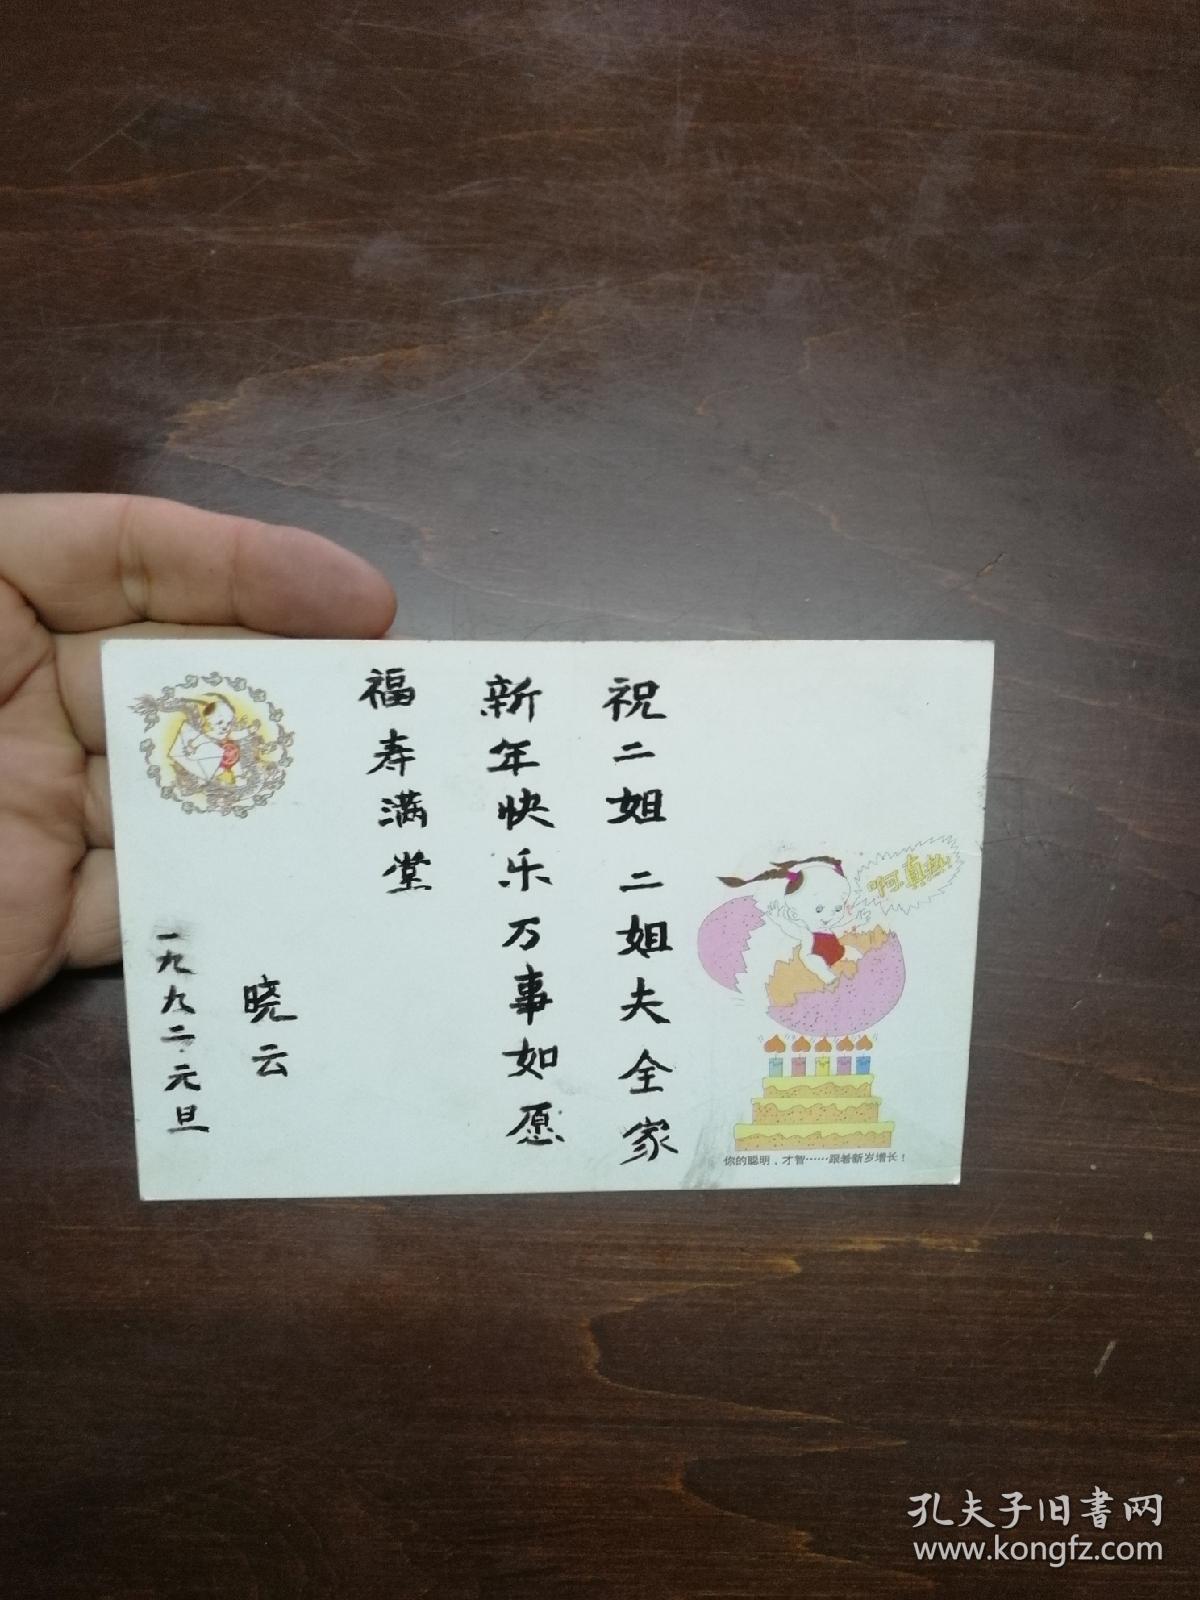 祝二姐 二姐夫全家
新年快乐万事如愿
福寿满堂
晓云
一九九二.元旦
啊,真热!
你的聪明、才智……跟着新岁增长！
孔夫子旧書网
www.kongfz.com